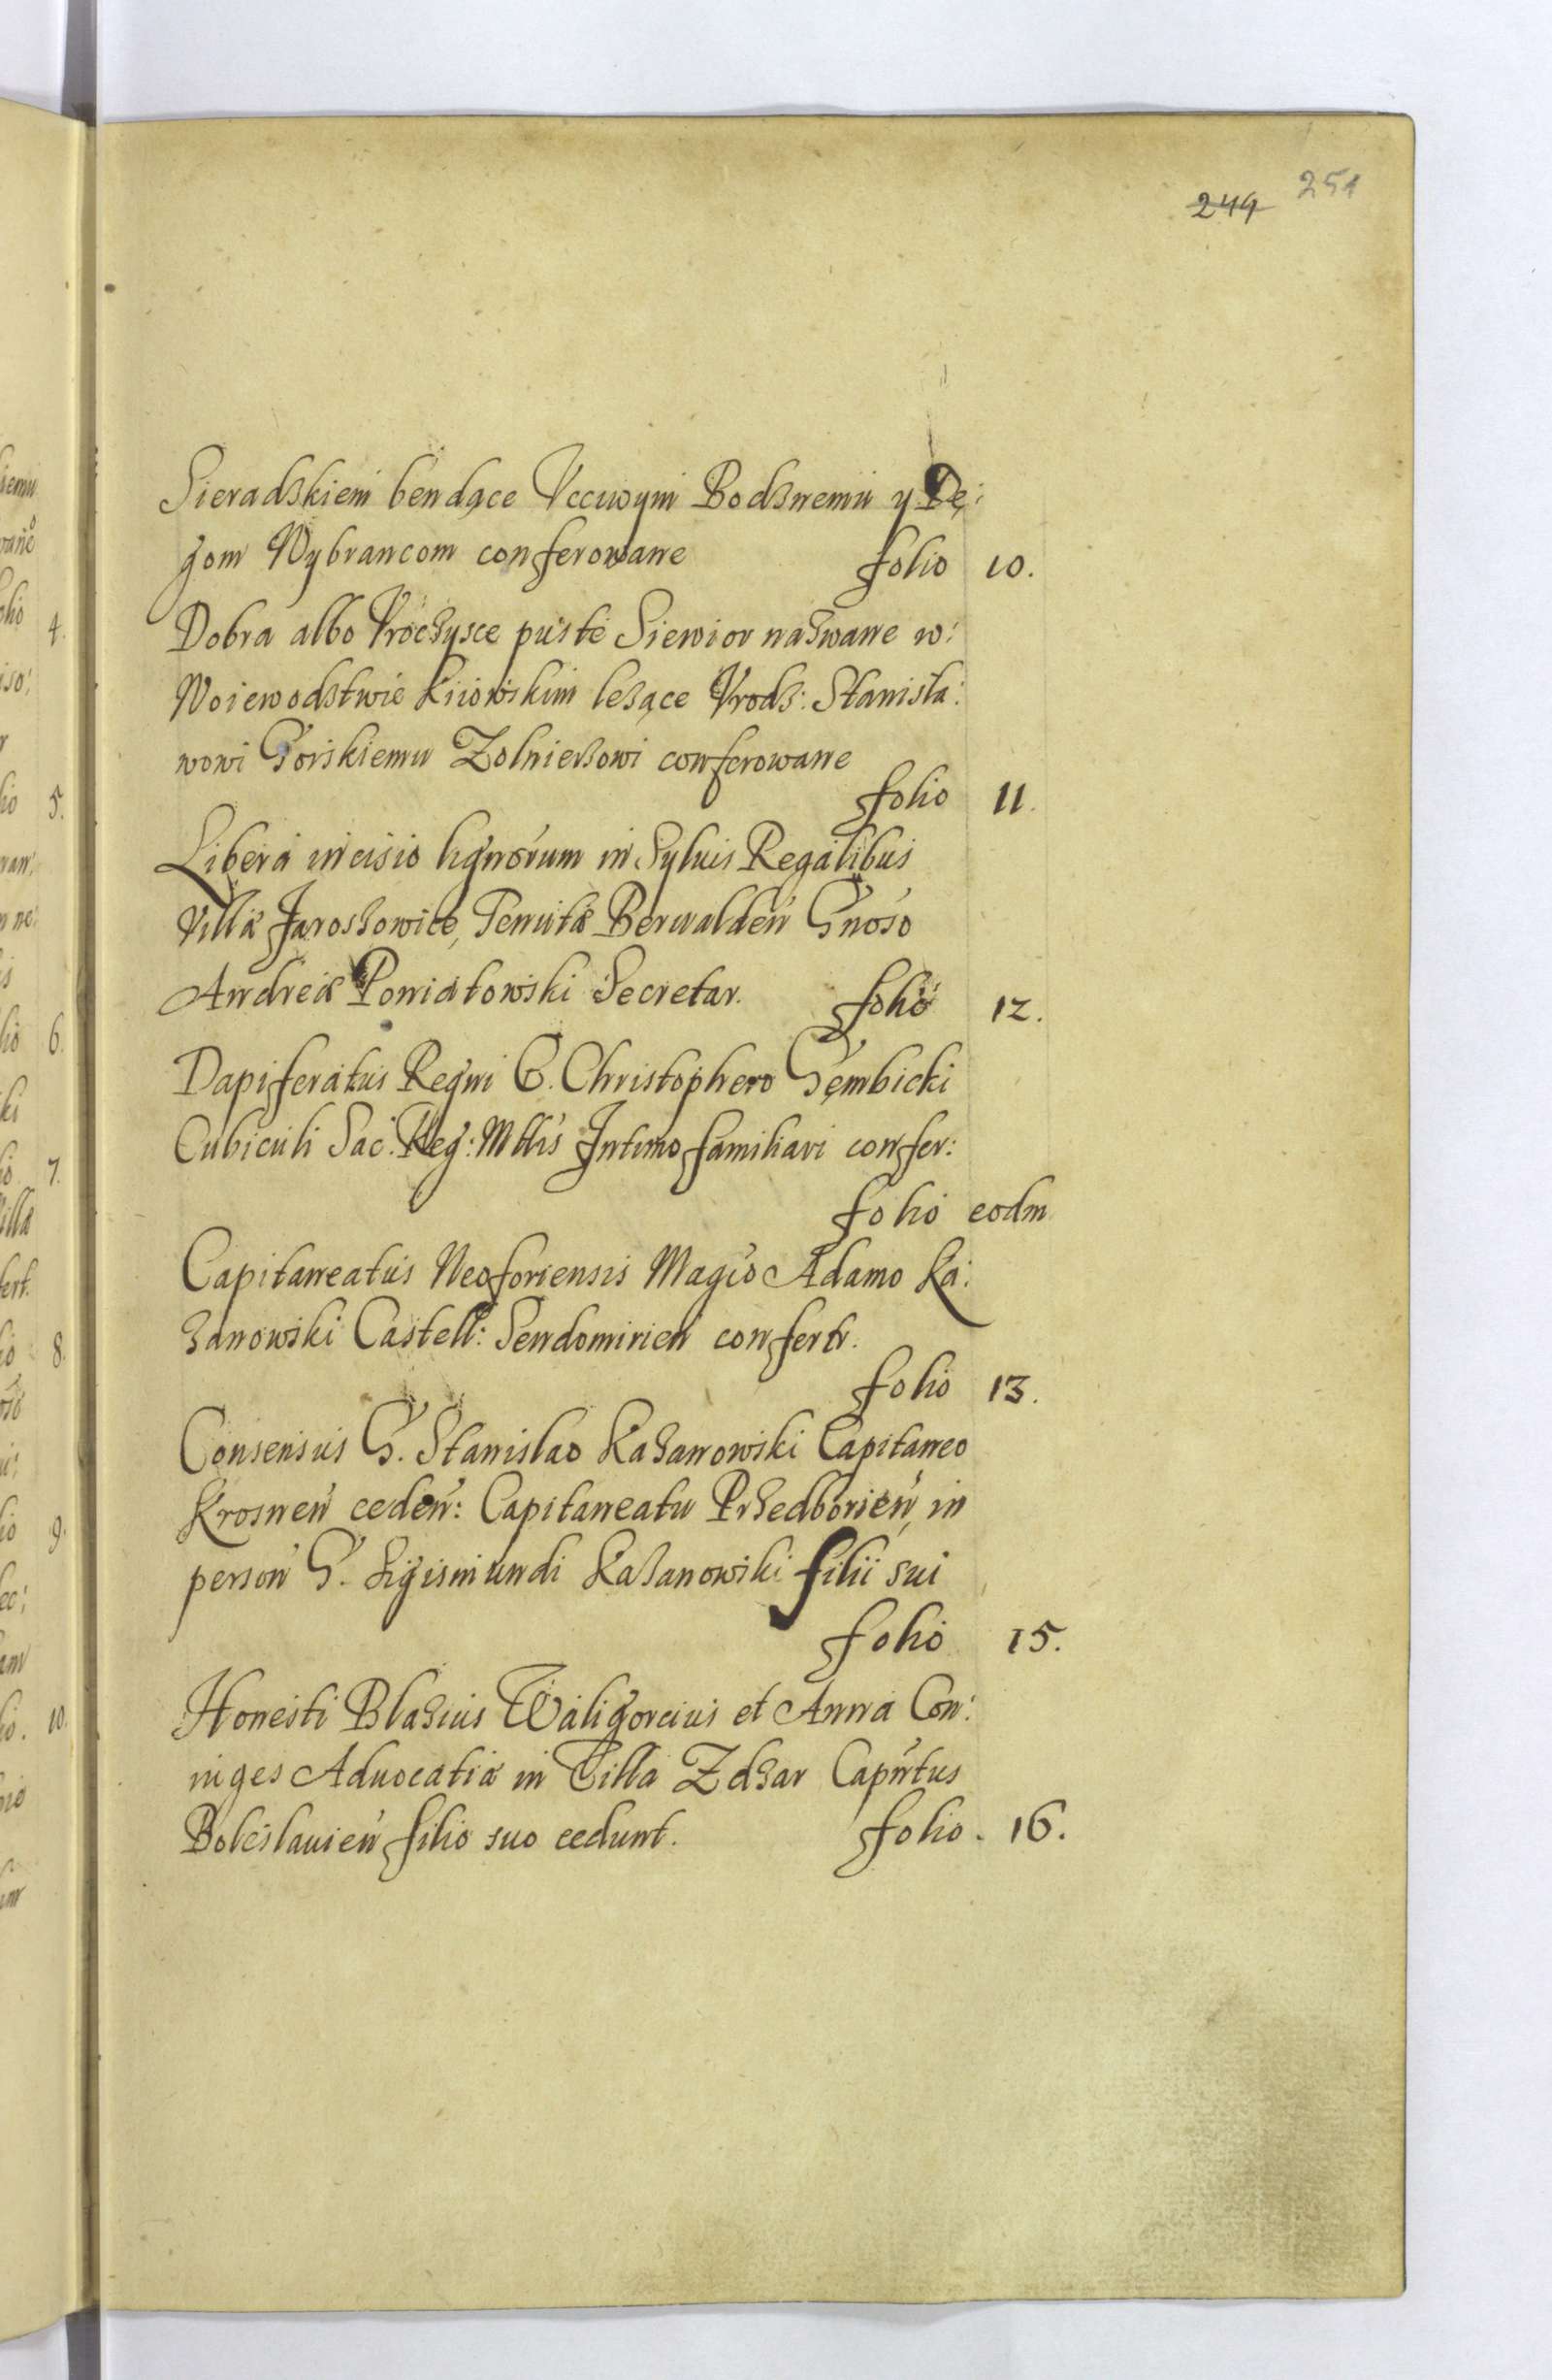 249 251
Sieradzkiem bendące Vcciwym Bodznemu y Dę:
gom Wybrancom conferowane folio 10.
Dobra albo Vroczysce puste Siewior nazwane w:
Woiewodztwie Kiiowskim lezące Vrodz: Stanisła:
wowi Gorskiemu Zolnierzowi conferowane
folio 11.
Libera incisio lignorum in Syluis Regalibus
Villæ Jaroszowice, Tenutæ Berwalden Gnoso
Andreæ Poniatowski Secretar. folio 12.
Dapiferatus Regni G. Christophero Gembicki
Cubiculi Sac. Reg: Mttis Intimo familiari confer:
folio eodm
Capitaneatus Neoforiensis Magco Adamo Ka:
zanowski Castell: Sendomirien confertr.
folio 13.
Consensus G. Stanislao Kazanowski Capitaneo
Krosnen ceden: Capitaneatu Przedborien, in
person G. Sigismundi Kazanowski filii sui
folio 15.
Honesti Blasius Waligorcius et Anna Con:
iuges Aduocatiæ in Villa Zdzar Capntus
Boleslauien filio suo cedunt. folio. 16.
4.
5.
6.
7.
8.
9.
10.